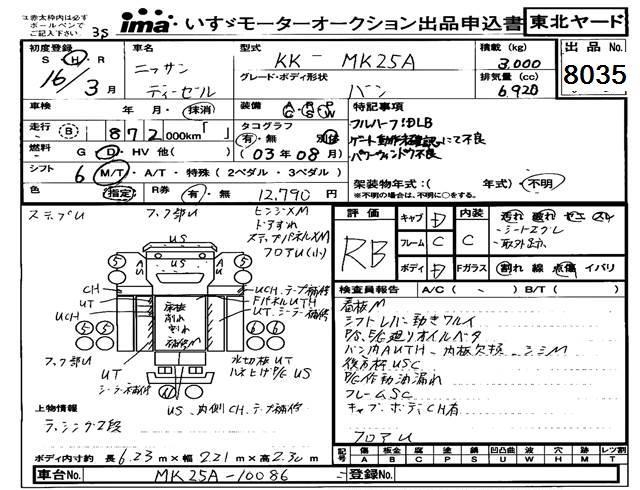 ユ赤太枠内は必ず
ボールペンで
ご記入下さい
35
ima いすゞモーターオークション出品申込書 東北ヤード
初度登録 車名 型式 積載 (kg) 出品 No.
S H R ニッサン KK- MK25A 3,000
16/3月 ディーゼル グレード・ボディ形状 排気量 (cc) 8035
バン 6,920
車検 年・月・抹消 装備 AC PS PW 特記事項
走行 B 872,000km「 」 タコグラフ フルハーフ!DLB
有・無 別体 ゲート動作確認にて不良
燃料 G D・HV 他( ) (03年08月) パワーウィンドウ不良
シフト 6 M/T・A/T・特殊(2ペダル・3ペダル)
架装物年式:( 年式)・不明
※不明の場合は、不明に○をする。
色 指定 R券 有・無 12,790円
ステップU フック部U ヒンジXM
ドアすれ
ステップパネルXM
フロアU(小)
評価 RB キャブ D 内装 汚れ 破れ
フレーム C C ・シートエグレ
・取外跡
ボディ D Fガラス 割れ 線 点傷 イバリ
検査員報告 A/C( - ) B/T( )
看板M
シフトレバー動きワルイ
P/S、E/G廻りオイルベタ
バン内AUTH、内板欠損
後方枠USC
P/G作動油漏れ
フレームSC
キャブ、ボディCH有
フロアU
US
5 5
AU SU
CH UCH、テープ補修
UT FパネルUTH
UCH UT、シーラー補修
床板
削れ
割れ
補修M
5 5 6 6
フック部U 水切板UT
UT ハネ上げP/G US
シーラー補修
US、内側CH、テープ補修
上物情報
ラッシング2段
ボディ内寸約 長 6.23m×幅 2.21m×高 2.30m
記号 傷 板金 腐 塗 錆 凹凸曲 波 穴 跡 レンズ割
A B C P S U W H M T
車台No. MK25A-10086 登録No.